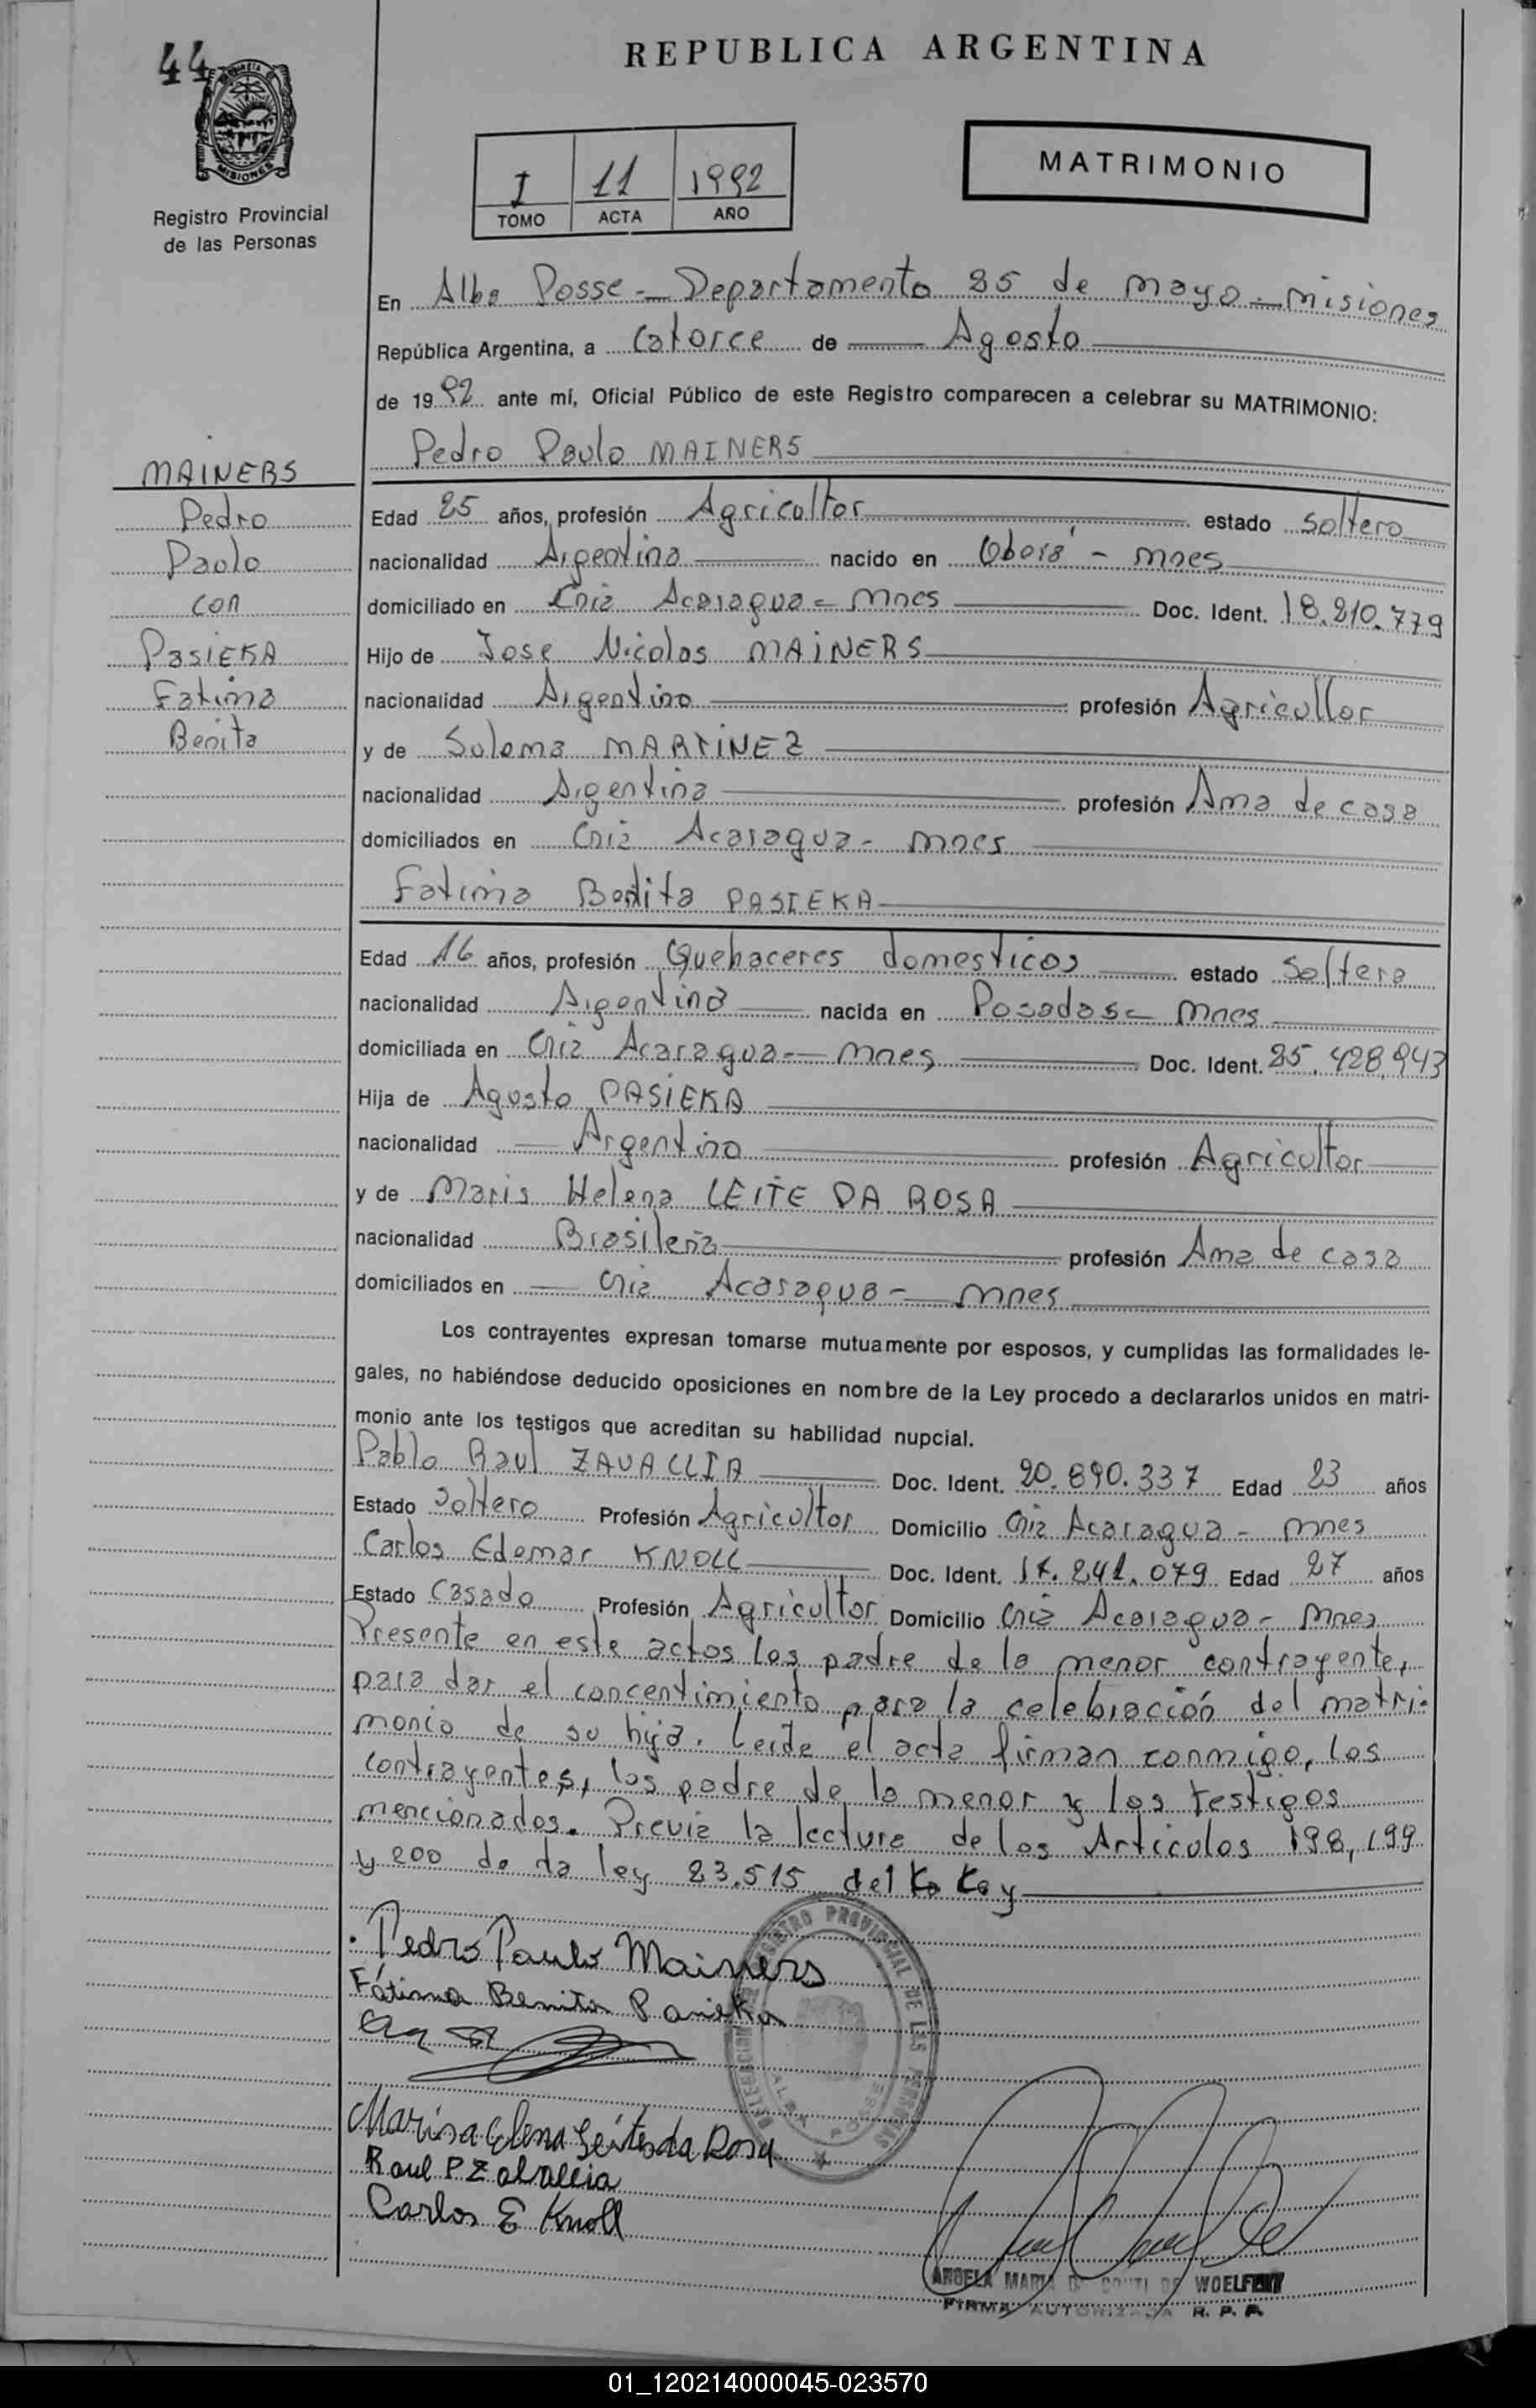 44
REPUBLICA ARGENTINA
MISIONES
Registro Provincial
de las Personas
I 11 1992
TOMO ACTA AÑO
MATRIMONIO
En Alba Posse - Departamento 25 de mayo - misiones
República Argentina, a catorce de Agosto
de 1992 ante mí, Oficial Público de este Registro comparecen a celebrar su MATRIMONIO:
Pedro Paulo MAINERS
MAINERS
Pedro
Paulo
con
PASIEKA
Fatima
Benita
Edad 25 años, profesión Agricultor estado soltero
nacionalidad Argentina nacido en Oberá - mnes
domiciliado en Cnia Acaragua - mnes Doc. Ident. 18.210.779
Hijo de Jose Nicolas MAINERS
nacionalidad Argentino profesión Agricultor
y de Sulema MARTINEZ
nacionalidad Argentina profesión Ama de casa
domiciliados en Cnia Acaragua - mnes
Fatima Benita PASIEKA
Edad 16 años, profesión Quehaceres domesticos estado soltera
nacionalidad Argentina nacida en Posadas - mnes
domiciliada en Cnia Acaragua - mnes Doc. Ident. 25.428.943
Hija de Agusto PASIEKA
nacionalidad Argentino profesión Agricultor
y de Maris Helena LEITE DA ROSA
nacionalidad Brasileña profesión Ama de casa
domiciliados en Cnia Acaragua - mnes
Los contrayentes expresan tomarse mutuamente por esposos, y cumplidas las formalidades le-
gales, no habiéndose deducido oposiciones en nombre de la Ley procedo a declararlos unidos en matri-
monio ante los testigos que acreditan su habilidad nupcial.
Pablo Raul ZAVACLIA Doc. Ident. 20.890.337 Edad 23 años
Estado soltero Profesión Agricultor Domicilio Cnia Acaragua - mnes
Carlos Edemar KNOLL Doc. Ident. 17.241.079 Edad 27 años
Estado Casado Profesión Agricultor Domicilio Cnia Acaragua - mnes
Presente en este actos los padre de la menor contrayente,
para dar el concentimiento para la celebración del matri-
monio de su hija. Leída el acta firman conmigo, los
contrayentes, los padre de la menor y los testigos
mencionados. Previa la lectura de los Articulos 198, 199
y 200 de la ley 23.515 del
Pedro Paulo Mainers
Fátima Benita Pasieka
Marisa Elena Leites da Rosa
Raul P Zavaccia
Carlos E Knoll
DELEGACION REGISTRO PROVINCIAL DE LAS PERSONAS
ALBA POSSE
ANGELA MARIA DE CONTI DE WOELFERT
FIRMA AUTORIZADA R. P. P.
01_120214000045-023570